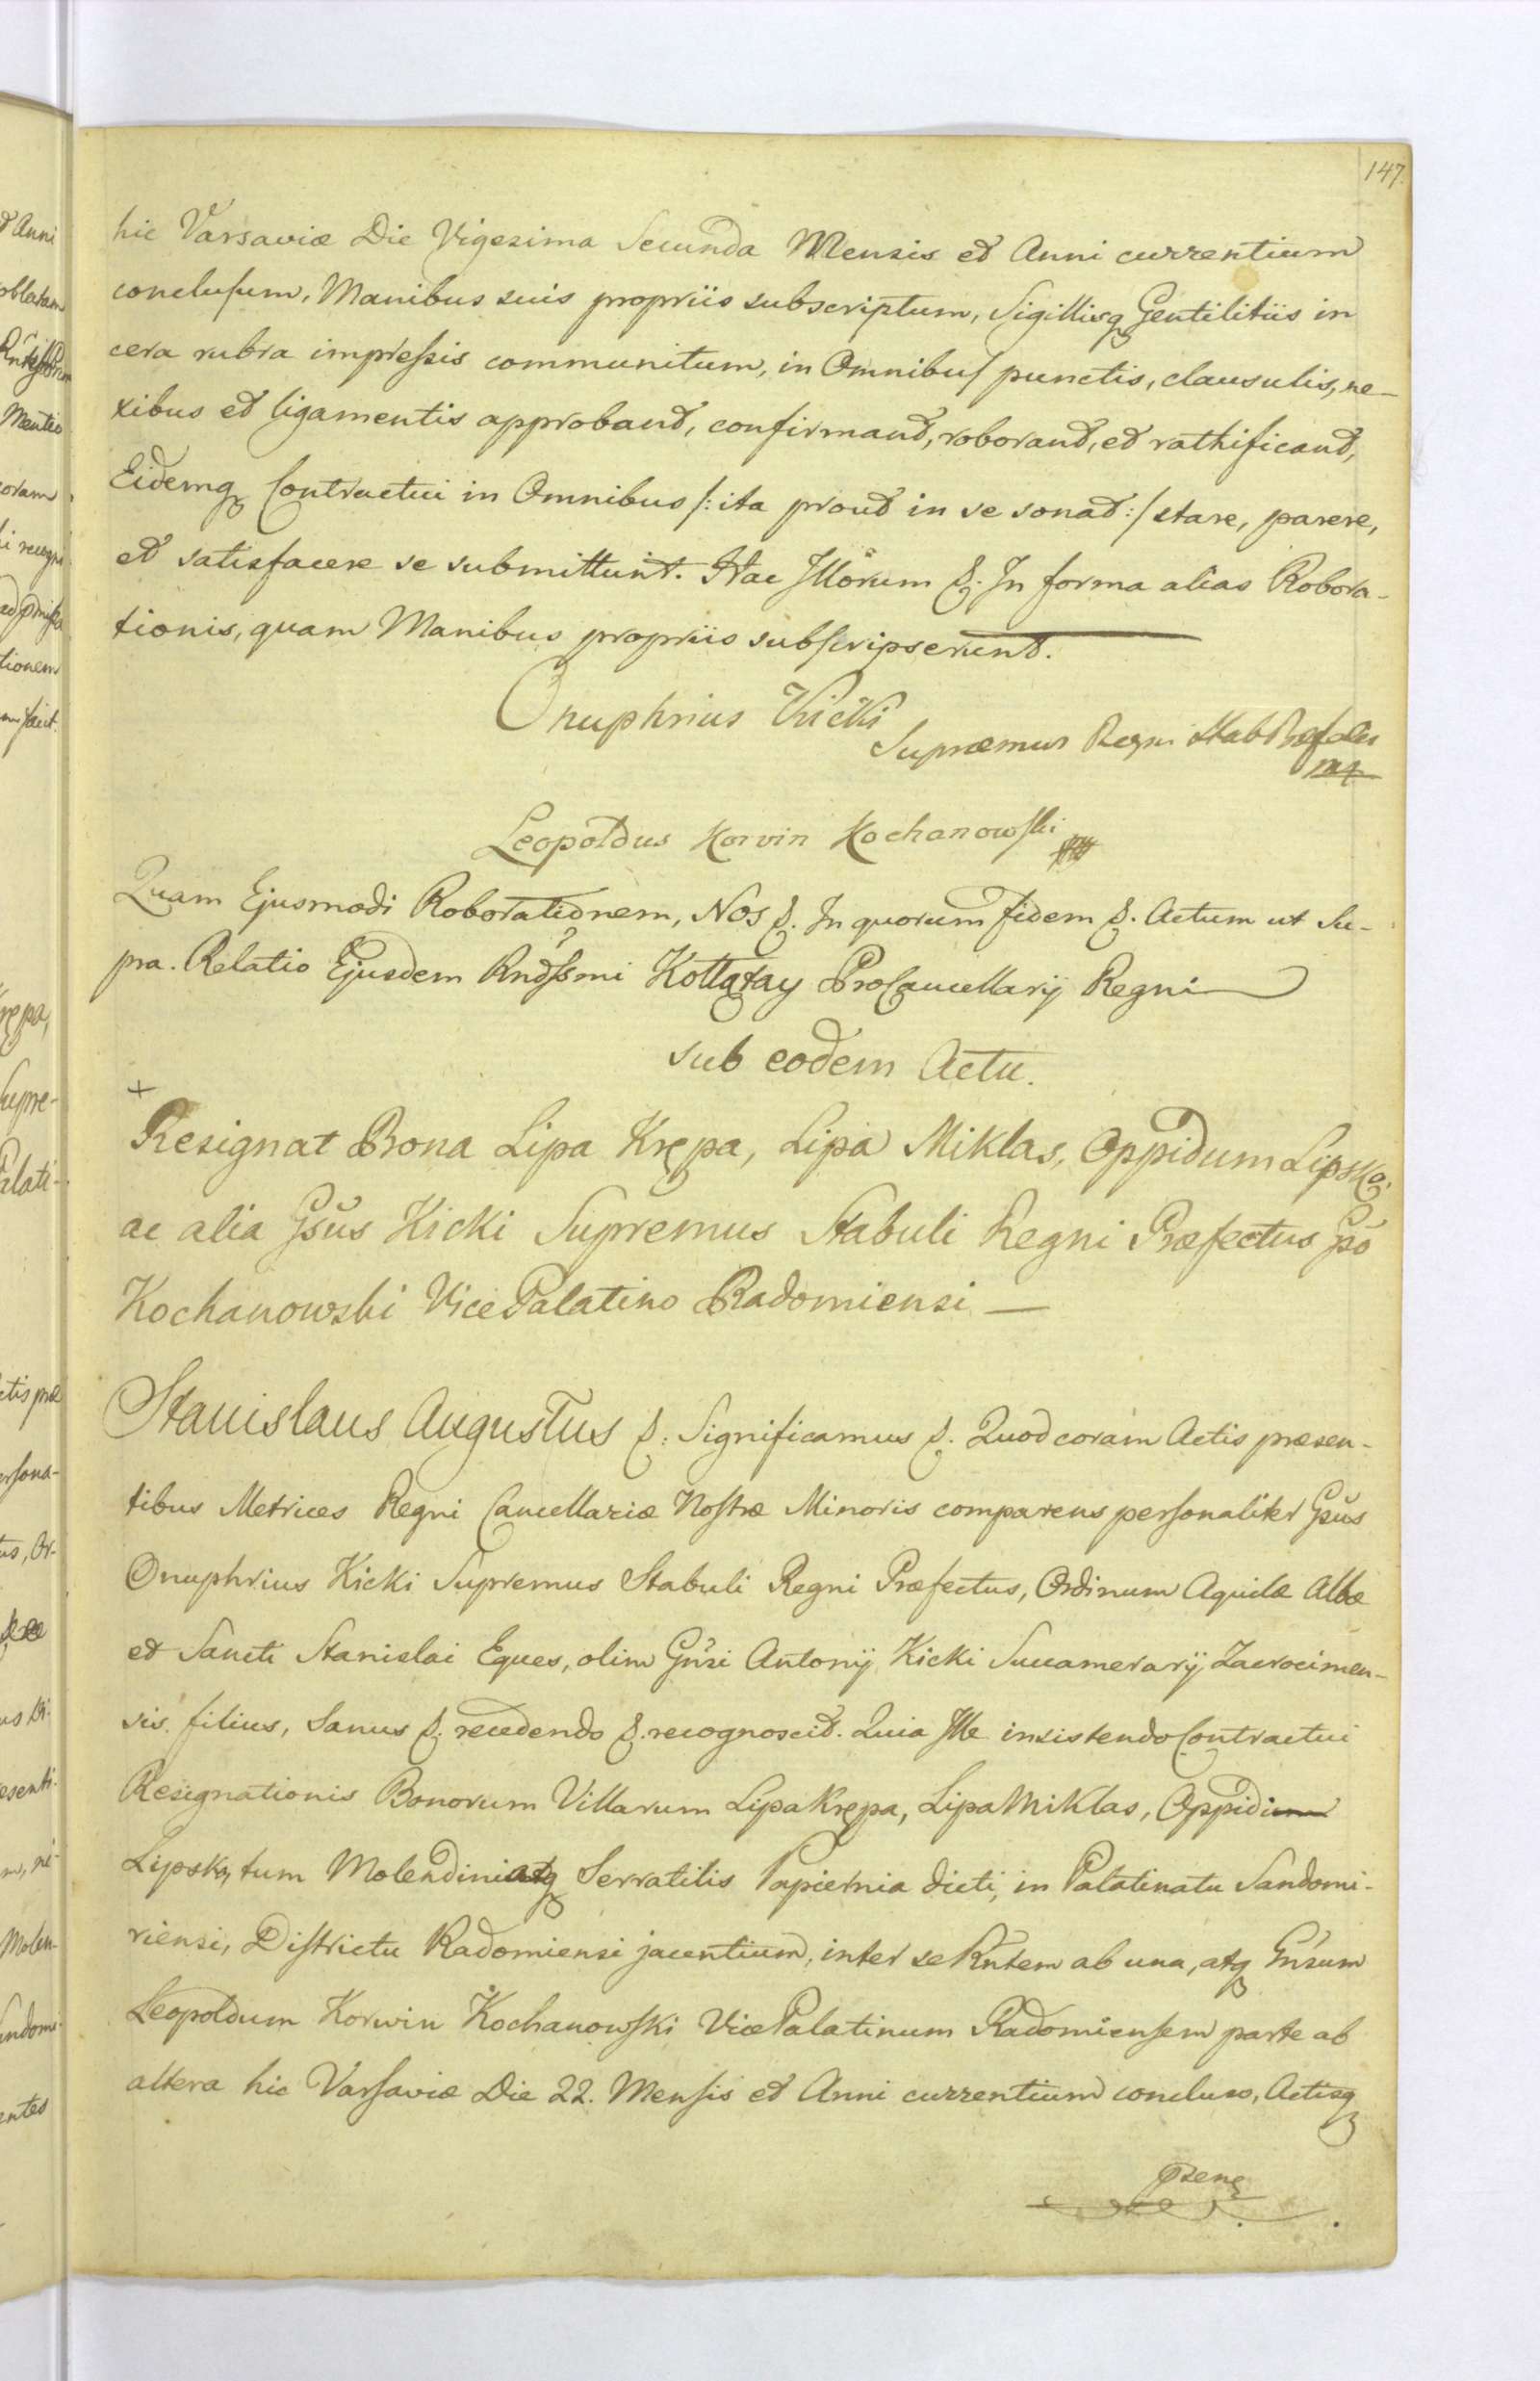 147.
hic Varsaviæ Die Vigesima Secunda Mensis et Anni currentium
conclusum, Manibus suis propriis subscriptum, Sigillisq Gentilitiis in
cera rubra impressis communitum, in Omnibus punctis, clausulis, ne-
xibus et ligamentis approbant, confirmant, roborant, et rathificant,
Eidemq Contractui in Omnibus /: ita prout in se sonat :/ stare, parere,
et satisfacere se submittunt. Hac Illorum &. In forma alias Robora-
tionis, quam Manibus propriis subscripserunt.
Onuphrius Kicki
Supræmus Regni Stab Præfectus
mp
Leopoldus Korvin Kochanowski
Quam Ejusmodi Roborationem, Nos &. In quorum fidem &. Actum ut Su-
pra. Relatio Ejusdem Rndssmi Kołłątay ProCancellarij Regni
sub eodem Actu.
+
Resignat Bona Lipa Krępa, Lipa Miklas, Oppidum Lipsko,
ac alia Gsus Kicki Supremus Stabuli Regni Præfectus Gso
Kochanowski Vice Palatino Radomiensi —
Stanislaus Augustus &: Significamus &. Quod coram Actis præsen-
tibus Metrices Regni Cancellariæ Nostræ Minoris comparens personaliter Gsus
Onuphrius Kicki Supremus Stabuli Regni Præfectus, Ordinum Aquilæ Albæ
et Sancti Stanislai Eques, olim Gnsi Antonij Kicki Succamerarij Zacrocimen-
sis filius, Sanus &. recedendo &. recognoscit. Quia Ille insistendo Contractui
Resignationis Bonorum Villarum Lipa Krępa, Lipa Miklas, Oppidi
Lipsko, tum Molendini atq Serratilis Papiernia dicti, in Palatinatu Sandomi-
riensi, Districtu Radomiensi jacentium, inter se Rntem ab una, atq Gnsum
Leopoldum Korwin Kochanowski Vice Palatinum Radomiensem parte ab
altera hic Varsaviæ Die 22. Mensis et Anni currentium concluso, Actisq